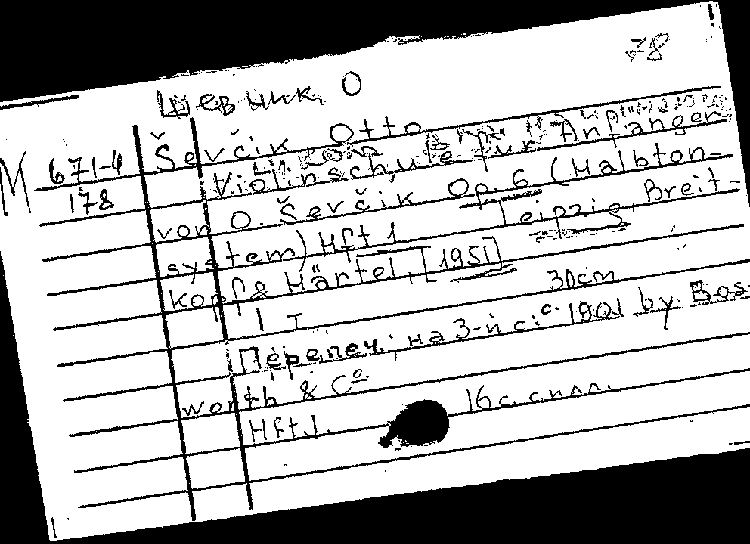 78
Шевчик, О
M 671-4
178
Ševčik Otto
Violinschule für Anfänger
von O. Ševčik Op. 6 (Halbton-
system) Hft 1 Leipzig, Breit-
kopf & Härtel, [1951]
1 т. 30cm
Перепеч.: на 3-й с.: c. 1901 by Bos-
worth & Cº
Hft. 1. 16 с. с илл.